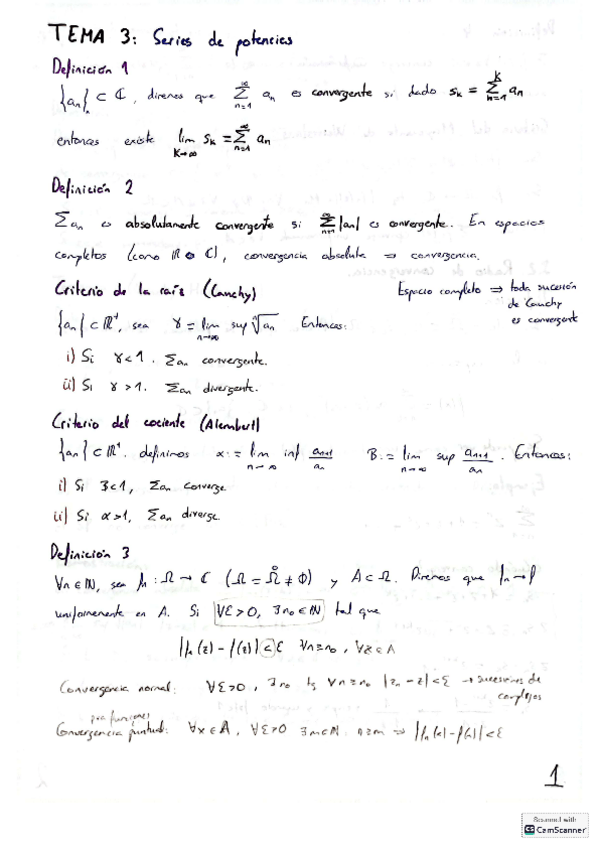 TEMA 3: Series de potencias
Definición 1
{aₙ}ₙ ⊂ ℂ, diremos que ∑_{n=1}^{∞} aₙ es convergente si dado s_K = ∑_{n=1}^{K} aₙ
entonces existe lim_{K→∞} s_K = ∑_{n=1}^{∞} aₙ
Definición 2
∑aₙ es absolutamente convergente si ∑_{n=1}^{∞} |aₙ| es convergente. En espacios
completos (como ℝ o ℂ), convergencia absoluta ⇒ convergencia.
Criterio de la raíz (Cauchy)
Espacio completo ⇒ toda sucesión
de Cauchy
es convergente
{aₙ} ⊂ ℝ⁺, sea γ = lim sup_{n→∞} ⁿ√aₙ Entonces:
i) Si γ < 1. ∑aₙ convergente.
ii) Si γ > 1. ∑aₙ divergente.
Criterio del cociente (Alembert)
{aₙ} ⊂ ℝ⁺. definimos α := lim inf_{n→∞} aₙ₊₁/aₙ B := lim sup_{n→∞} aₙ₊₁/aₙ. Entonces:
i) Si B < 1, ∑aₙ converge
ii) Si α > 1, ∑aₙ diverge.
Definición 3
∀n ∈ ℕ, sea fₙ: Ω → ℂ (Ω = Ω̊ ≠ Φ) y A ⊂ Ω. Diremos que fₙ → f
uniformemente en A. Si ∀ε > 0, ∃n₀ ∈ ℕ tal que
|fₙ(z) - f(z)| < ε ∀n ≥ n₀, ∀z ∈ A
Convergencia normal: ∀ε > 0, ∃n₀ tq ∀n ≥ n₀ |zₙ - z| < ε → sucesiones de
complejos
para funciones
Convergencia puntual: ∀x ∈ A, ∀ε > 0 ∃m ∈ ℕ, n ≥ m ⇒ |fₙ(x) - f(x)| < ε
1
Scanned with
CS CamScanner